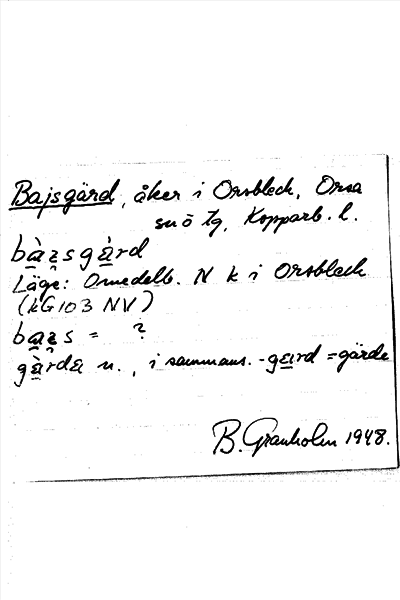 Bajsgärd, åker i Orsbleck, Orsa
sn ö tg, Kopparb. l.
bàɪsgà̱rd
Läge: Omedelb. N k i Orsbleck
(kG103 NV)
baɪs = ?
gà̱rda n., i sammans. -ga̱ɪrd = gärde
B. Granholm 1948.